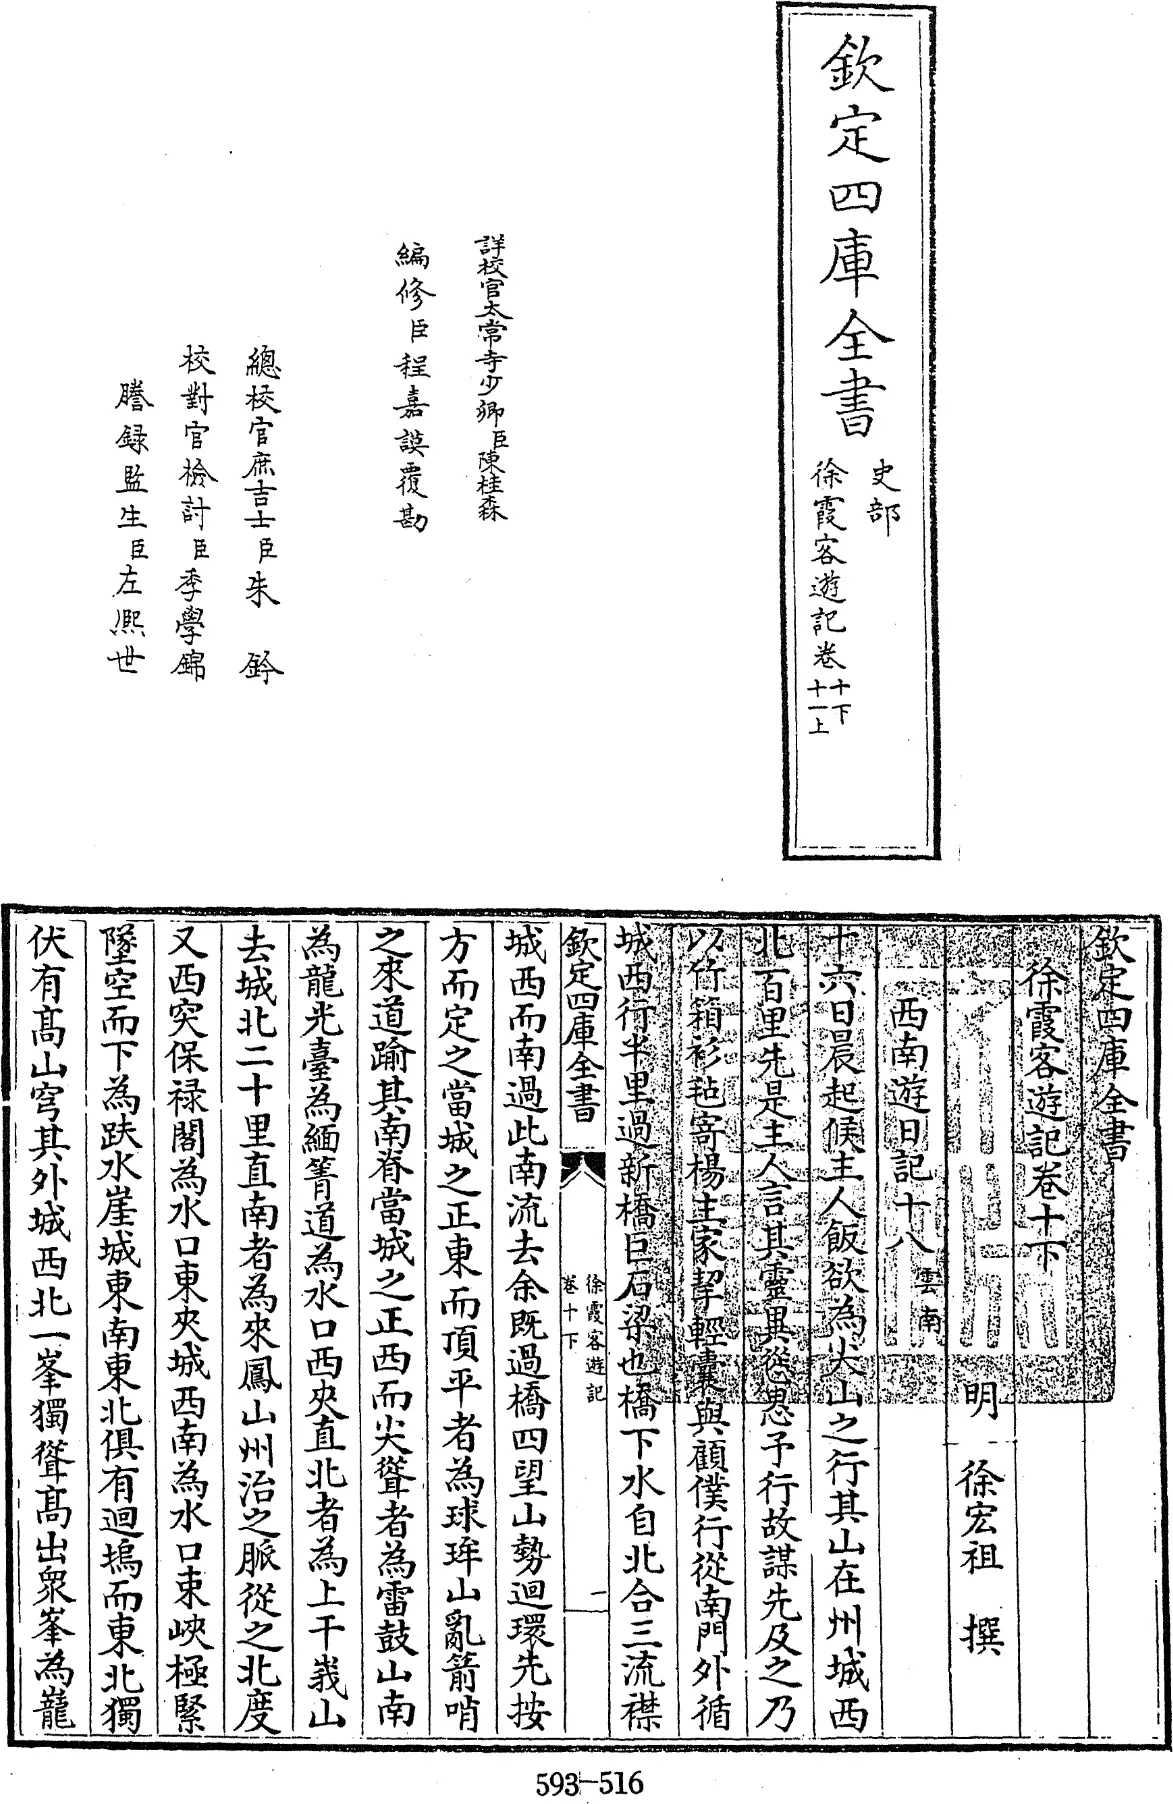 欽定四庫全書
史部
徐霞客遊記卷十下
十一上
詳校官太常寺少卿臣陳桂森
編修臣程嘉謨覆勘
總校官庶吉士臣朱鈐
校對官檢討臣季學錦
謄錄監生臣左熙世
欽定四庫全書
徐霞客遊記卷十下
明 徐宏祖 撰
西南遊日記十八雲南
十六日晨起候主人飯欲為尖山之行其山在州城西
北百里先是主人言其靈異從思予行故謀先及之乃
以竹箱衫毡寄楊主家挈輕囊與顧僕行從南門外循
城西行半里過新橋巨石梁也橋下水自北合三流襟
欽定四庫全書
徐霞客遊記
卷十下
一
城西而南過此南流去余既過橋四望山勢迴環先按
方而定之當城之正東而頂平者為球琒山亂箭哨
之來道踰其南脊當城之正西而尖聳者為雷鼓山南
為龍光臺為緬箐道為水口西夾直北者為上干峩山
去城北二十里直南者為來鳳山州治之脈從之北度
又西突保禄閣為水口東夾城西南為水口束峽極緊
墜空而下為跌水崖城東南東北俱有迴塢而東北獨
伏有高山穹其外城西北一峯獨聳高出衆峯為巃
593-516